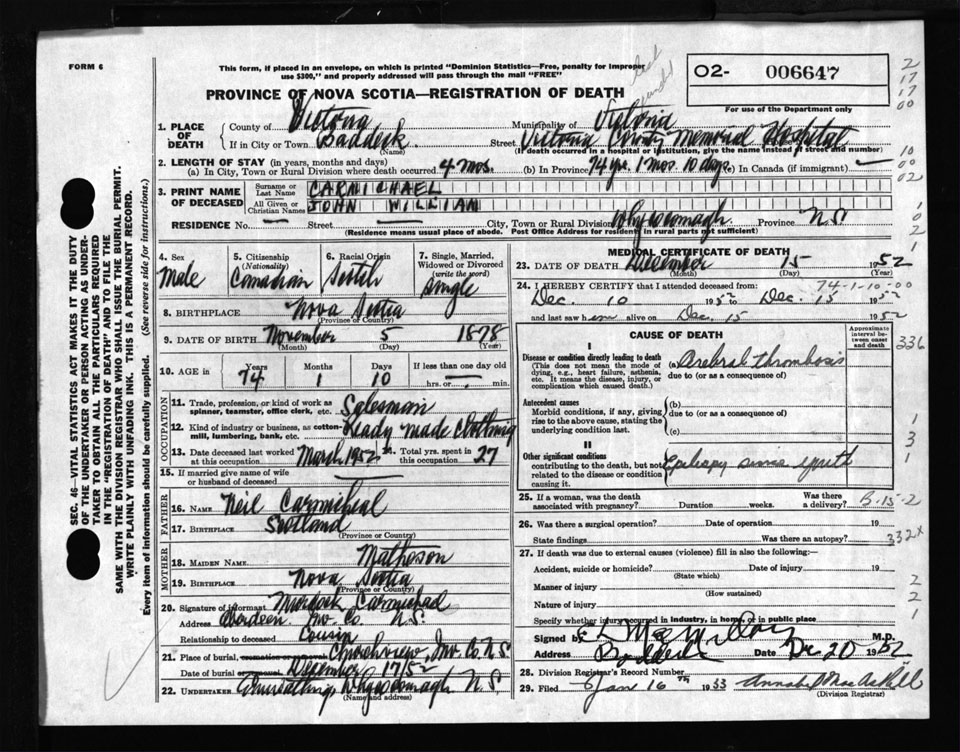 FORM 6
This form, if placed in an envelope, on which is printed "Dominion Statistics—Free, penalty for improper
use $300," and properly addressed will pass through the mail "FREE"
PROVINCE OF NOVA SCOTIA—REGISTRATION OF DEATH
O2- 006647
For use of the Department only
1. PLACE OF DEATH
County of Victoria Municipality of Victoria
If in City or Town Baddeck Street Victoria County Memorial Hospital
(Name) (If death occurred in a hospital or institution, give the name instead of street and number)
2. LENGTH OF STAY (in years, months and days)
(a) In City, Town or Rural Division where death occurred 4 mos. (b) In Province 74 yrs. 1 mos. 10 days (c) In Canada (if immigrant) —
3. PRINT NAME OF DECEASED
Surname or Last Name CARMICHAEL
All Given or Christian Names JOHN WILLIAM
RESIDENCE No. — Street City, Town or Rural Division Whycocomagh Province N.S.
(Residence means usual place of abode. Post Office Address for residents in rural parts not sufficient)
4. Sex Male
5. Citizenship (Nationality) Canadian
6. Racial Origin Scotch
7. Single, Married, Widowed or Divorced (write the word) Single
8. BIRTHPLACE Nova Scotia
(Province or Country)
9. DATE OF BIRTH November 5 1878
(Month) (Day) (Year)
10. AGE in Years 74 Months 1 Days 10 If less than one day old — hrs. or min.
OCCUPATION
11. Trade, profession, or kind of work as spinner, teamster, office clerk, etc. Salesman
12. Kind of industry or business, as cotton-mill, lumbering, bank, etc. Ready made clothing
13. Date deceased last worked at this occupation March 1952 Total yrs. spent in this occupation 27
15. If married give name of wife or husband of deceased
FATHER
16. NAME Neil Carmichael
17. BIRTHPLACE Scotland
(Province or Country)
MOTHER
18. MAIDEN NAME Matheson
19. BIRTHPLACE Nova Scotia
(Province or Country)
20. Signature of informant Murdock Carmichael
Address Aberdeen Inv. Co. N.S.
Relationship to deceased Cousin
21. Place of burial, cremation or removal Churchview, Inv. Co. N.S.
Date of burial December 17/52
22. UNDERTAKER Whycocomagh N.S.
(Name and address)
MEDICAL CERTIFICATE OF DEATH
23. DATE OF DEATH December 15 1952
(Month) (Day) (Year)
74-1-10-00
24. I HEREBY CERTIFY that I attended deceased from:
Dec. 10 1952 to Dec. 15 1952
and last saw him alive on Dec. 15 1952
CAUSE OF DEATH
Approximate interval between onset and death
I
Disease or condition directly leading to death
(This does not mean the mode of dying, e.g., heart failure, asthenia, etc. It means the disease, injury, or complication which caused death.)
(a) Cerebral thrombosis
due to (or as a consequence of)
Antecedent causes
Morbid conditions, if any, giving rise to the above cause, stating the underlying condition last.
(b)
due to (or as a consequence of)
(c)
II
Other significant conditions
contributing to the death, but not related to the disease or condition causing it.
Epilepsy since youth
25. If a woman, was the death associated with pregnancy? Duration weeks. Was there a delivery? B-15-2
26. Was there a surgical operation? Date of operation 19
State findings Was there an autopsy? 332x
27. If death was due to external causes (violence) fill in also the following:—
Accident, suicide or homicide? Date of injury 19
(State which)
Manner of injury
(How sustained)
Nature of injury
Specify whether injury occurred in industry, in home, or in public place
Signed by M.D.
Address Baddeck Date Dec 20 1952
28. Division Registrar's Record Number
29. Filed Jan 16th 1953 Annabel MacAskill
(Division Registrar)
SEC. 46—VITAL STATISTICS ACT MAKES IT THE DUTY
OF THE UNDERTAKER OR PERSON ACTING AS UNDER-
TAKER TO OBTAIN ALL THE PARTICULARS REQUIRED
IN THE "REGISTRATION OF DEATH" AND TO FILE THE
SAME WITH THE DIVISION REGISTRAR WHO SHALL ISSUE THE BURIAL PERMIT.
WRITE PLAINLY WITH UNFADING INK. THIS IS A PERMANENT RECORD.
Every item of information should be carefully supplied. (See reverse side for instructions.)
2
17
17
00
10
00
02
1
0
2
1
336
1
3
1
2
2
1